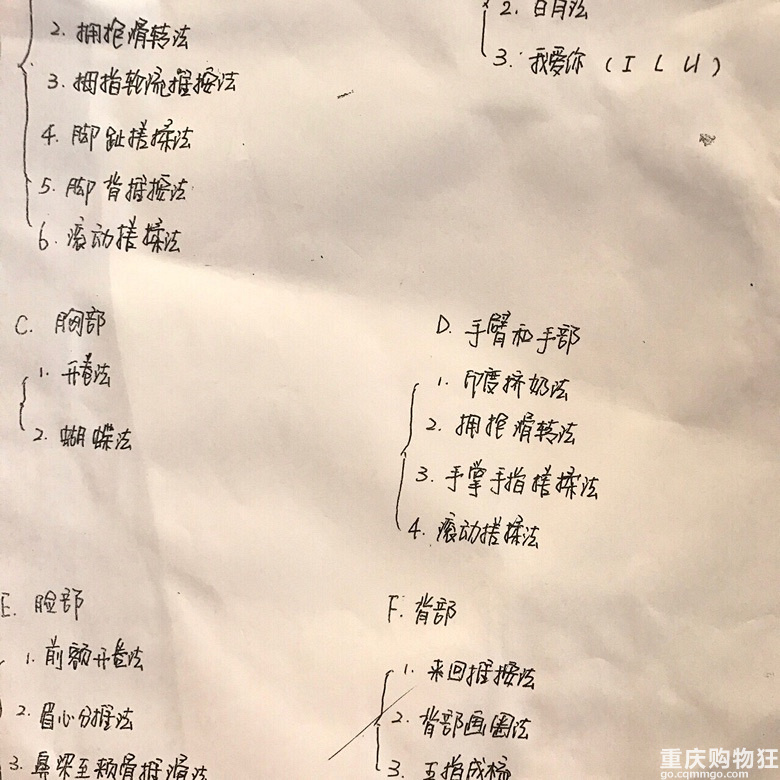 2. 拥抱滑转法
3. 拇指轮流推按法
4. 脚趾搓揉法
5. 脚背推按法
6. 滚动搓揉法
2. 日月法
3. 我爱你（I L U）
C. 胸部
1. 开卷法
2. 蝴蝶法
D. 手臂和手部
1. 印度挤奶法
2. 拥抱滑转法
3. 手掌手指搓揉法
4. 滚动搓揉法
E. 脸部
1. 前额开卷法
2. 眉心分推法
3. 鼻梁至颊骨推滑法
F. 背部
1. 来回推按法
2. 背部画圈法
3. 五指成梳
重庆购物狂
go.cqmmgo.com